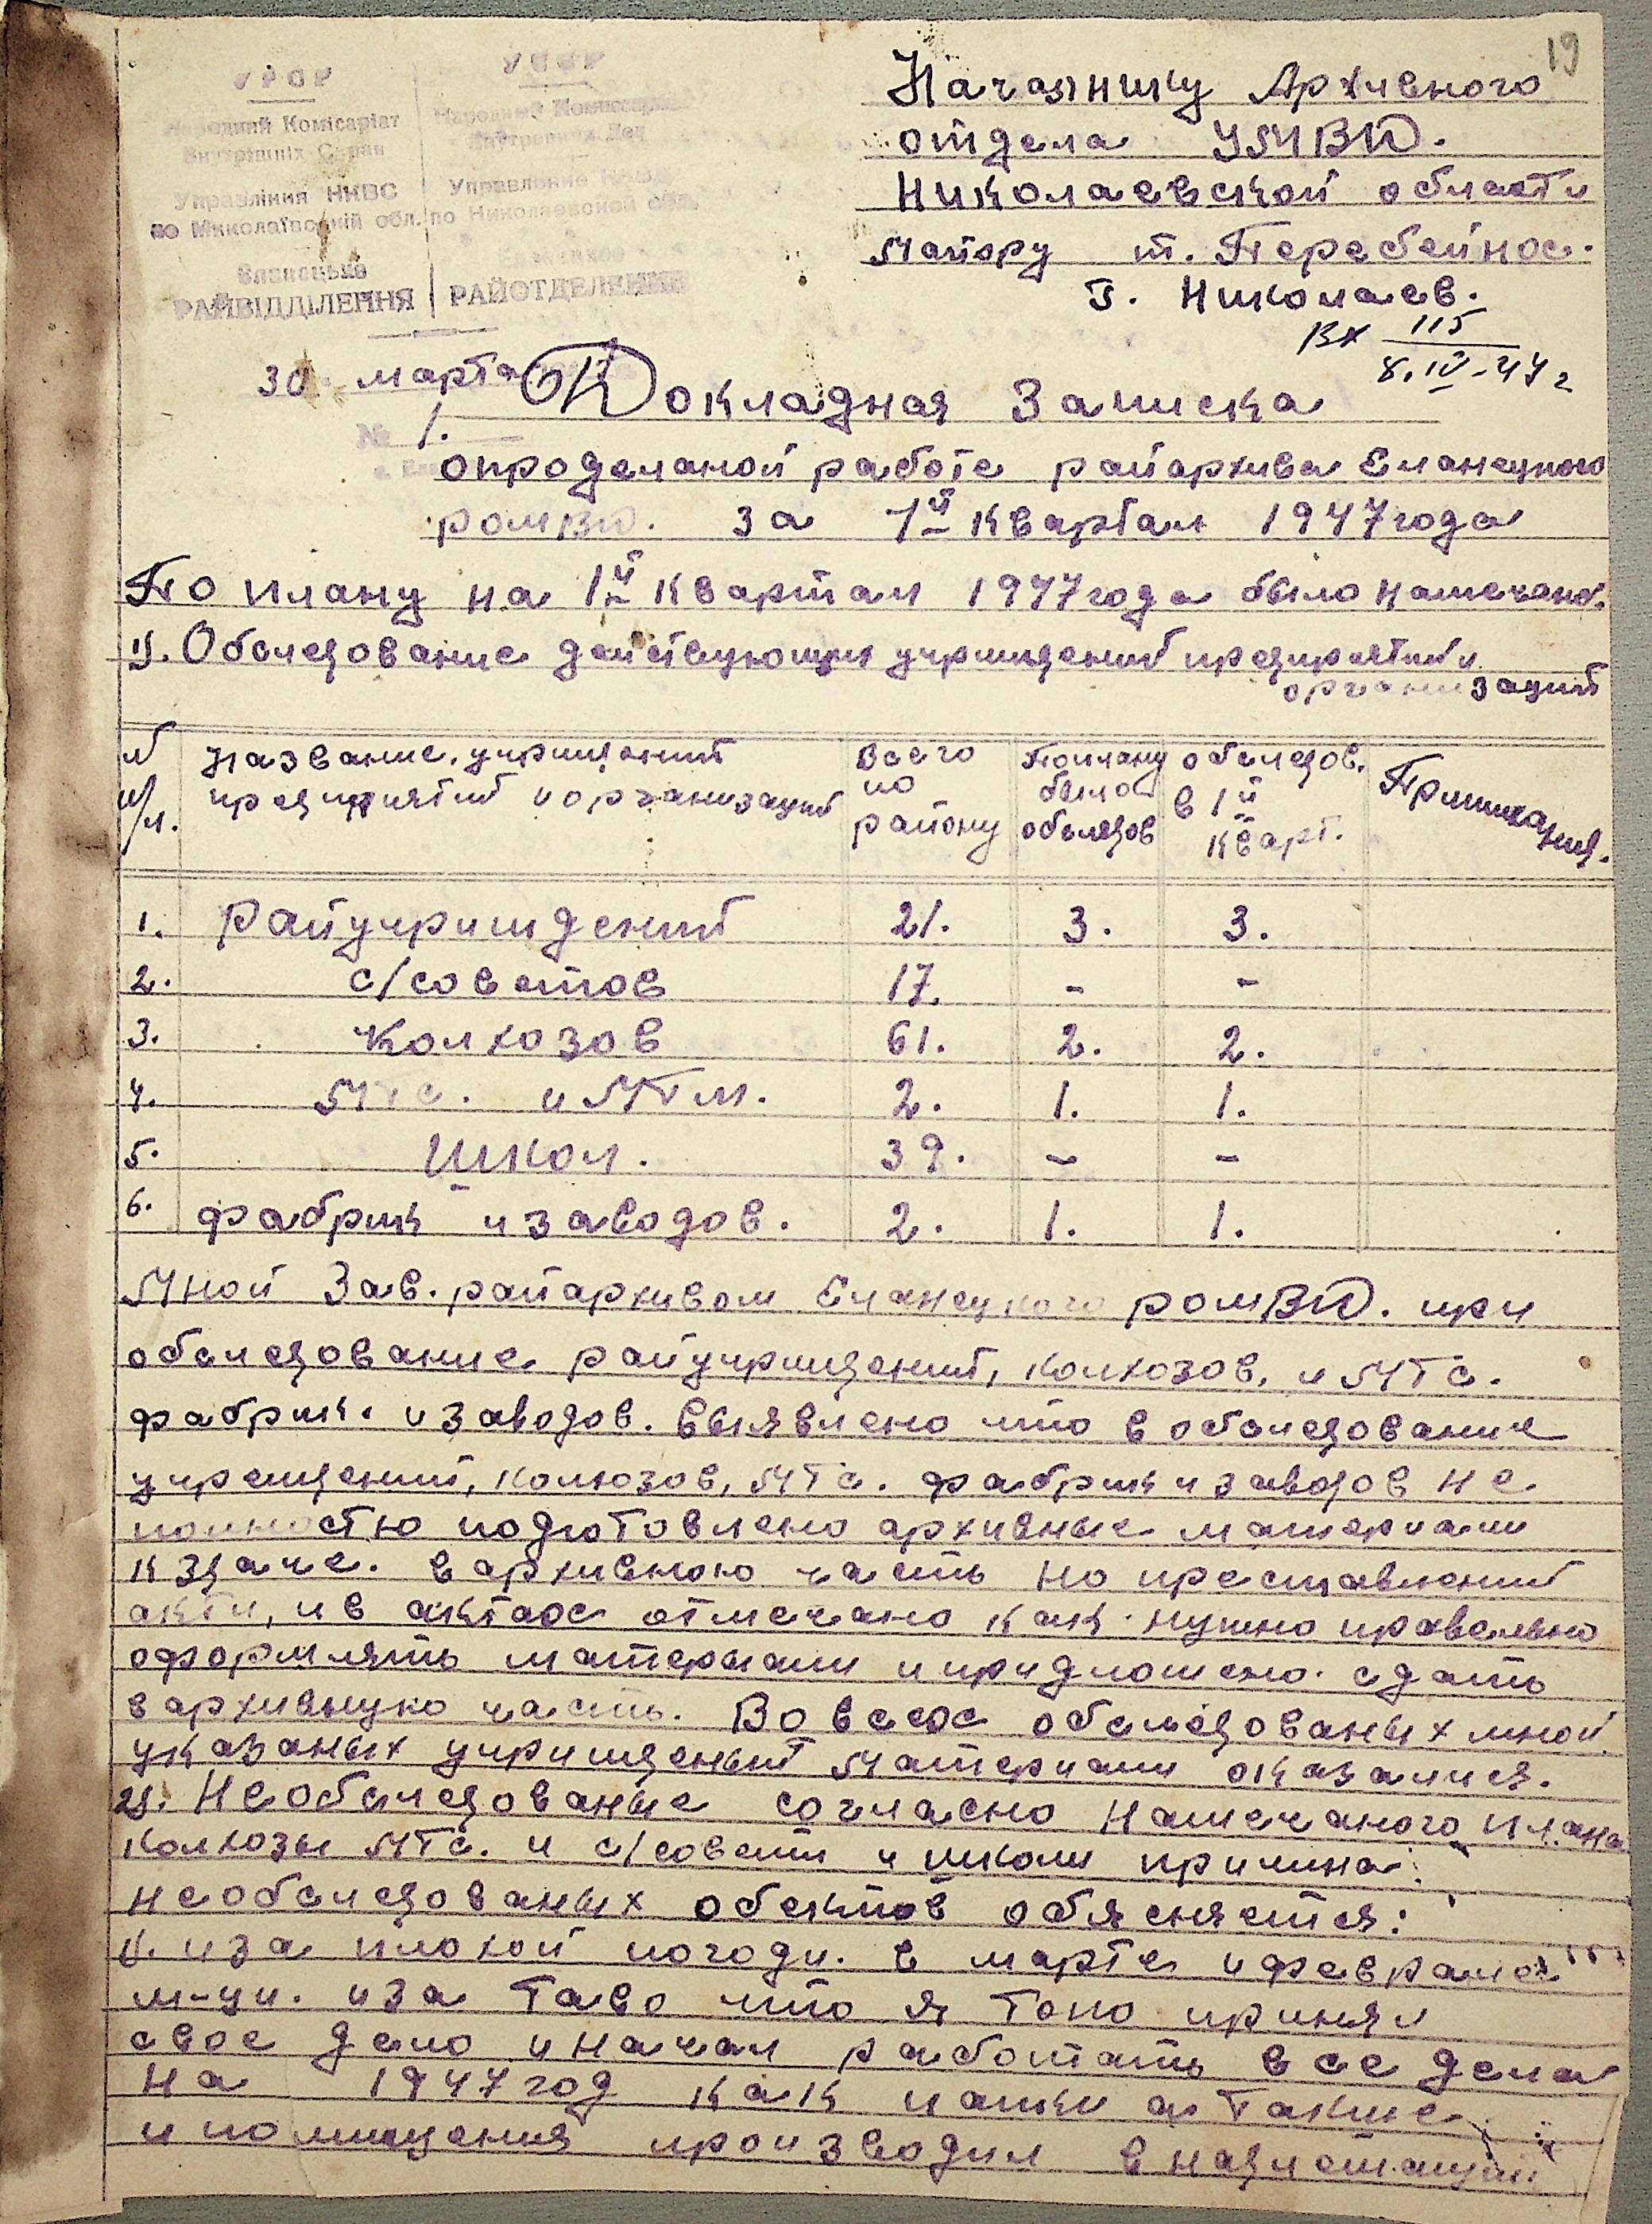 19
УРСР
Народний Комісаріат
Внутрішніх Справ
Управління НКВС
по Миколаївській обл.
Еланецьке
РАЙВІДДІЛЕННЯ
УССР
Народный Комиссариат
Внутренних Дел
Управление НКВД
по Николаевской обл.
РАЙОТДЕЛЕНИЕ
Начальнику Архивного
отдела УМВД.
Николаевской области
Майору т. Перебейнос.
г. Николаев.
Вх 115
8.IV-47 г
30 марта
№ 1.
Докладная Записка
опроделаной работе райархива Еланецкого
роМВД. за 1й квартал 1947 года
По плану на 1й квартал 1947 года было намечено.
1). Обследование действующих учриждений предприятий и
организаций
№ п/п.
Название учриждений предприятий и организаций
Всего по району
По плану было обследов
обследов. в 1й кварт.
Примичания.
1. Райучриждений 21. 3. 3.
2. с/советов 17. - -
3. Колхозов 61. 2. 2.
4. Мтс. и МТМ. 2. 1. 1.
5. Школ. 39. - -
6. фабрик и заводов. 2. 1. 1.
Мной Зав. райархивом Еланецкого роМВД. при
обследование райучриждений, колхозов, и МТС.
фабрик. и заводов. выявлено што в обследование
учреждений, колхозов, МТС. фабрик и заводов не
полностью подготовлено архивные материали
к здаче. в архивною часть но преставлений
акти, и в актах отмечано как нужно правельно
оформлять материали и придложено сдать
в архивную часть. Во всех обследованых мной
указаных учриждений Материали оказались.
2). Необследованые согласно намечаного плана
колхозы МТС. и с/совети и школи причина
необследованых обектов обясняется:
1). иза плохой погоди. в марте и феврале
м-ци. иза таво што я токо принял
свое дело и начал работать все дела
на 1947 год как папки а такие
и помищения производил в